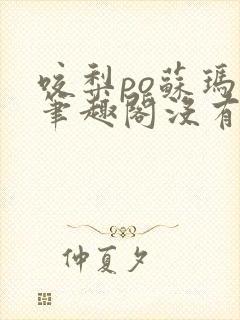 咬梨po蘇瑪
筆趣閣沒有
仲夏夕